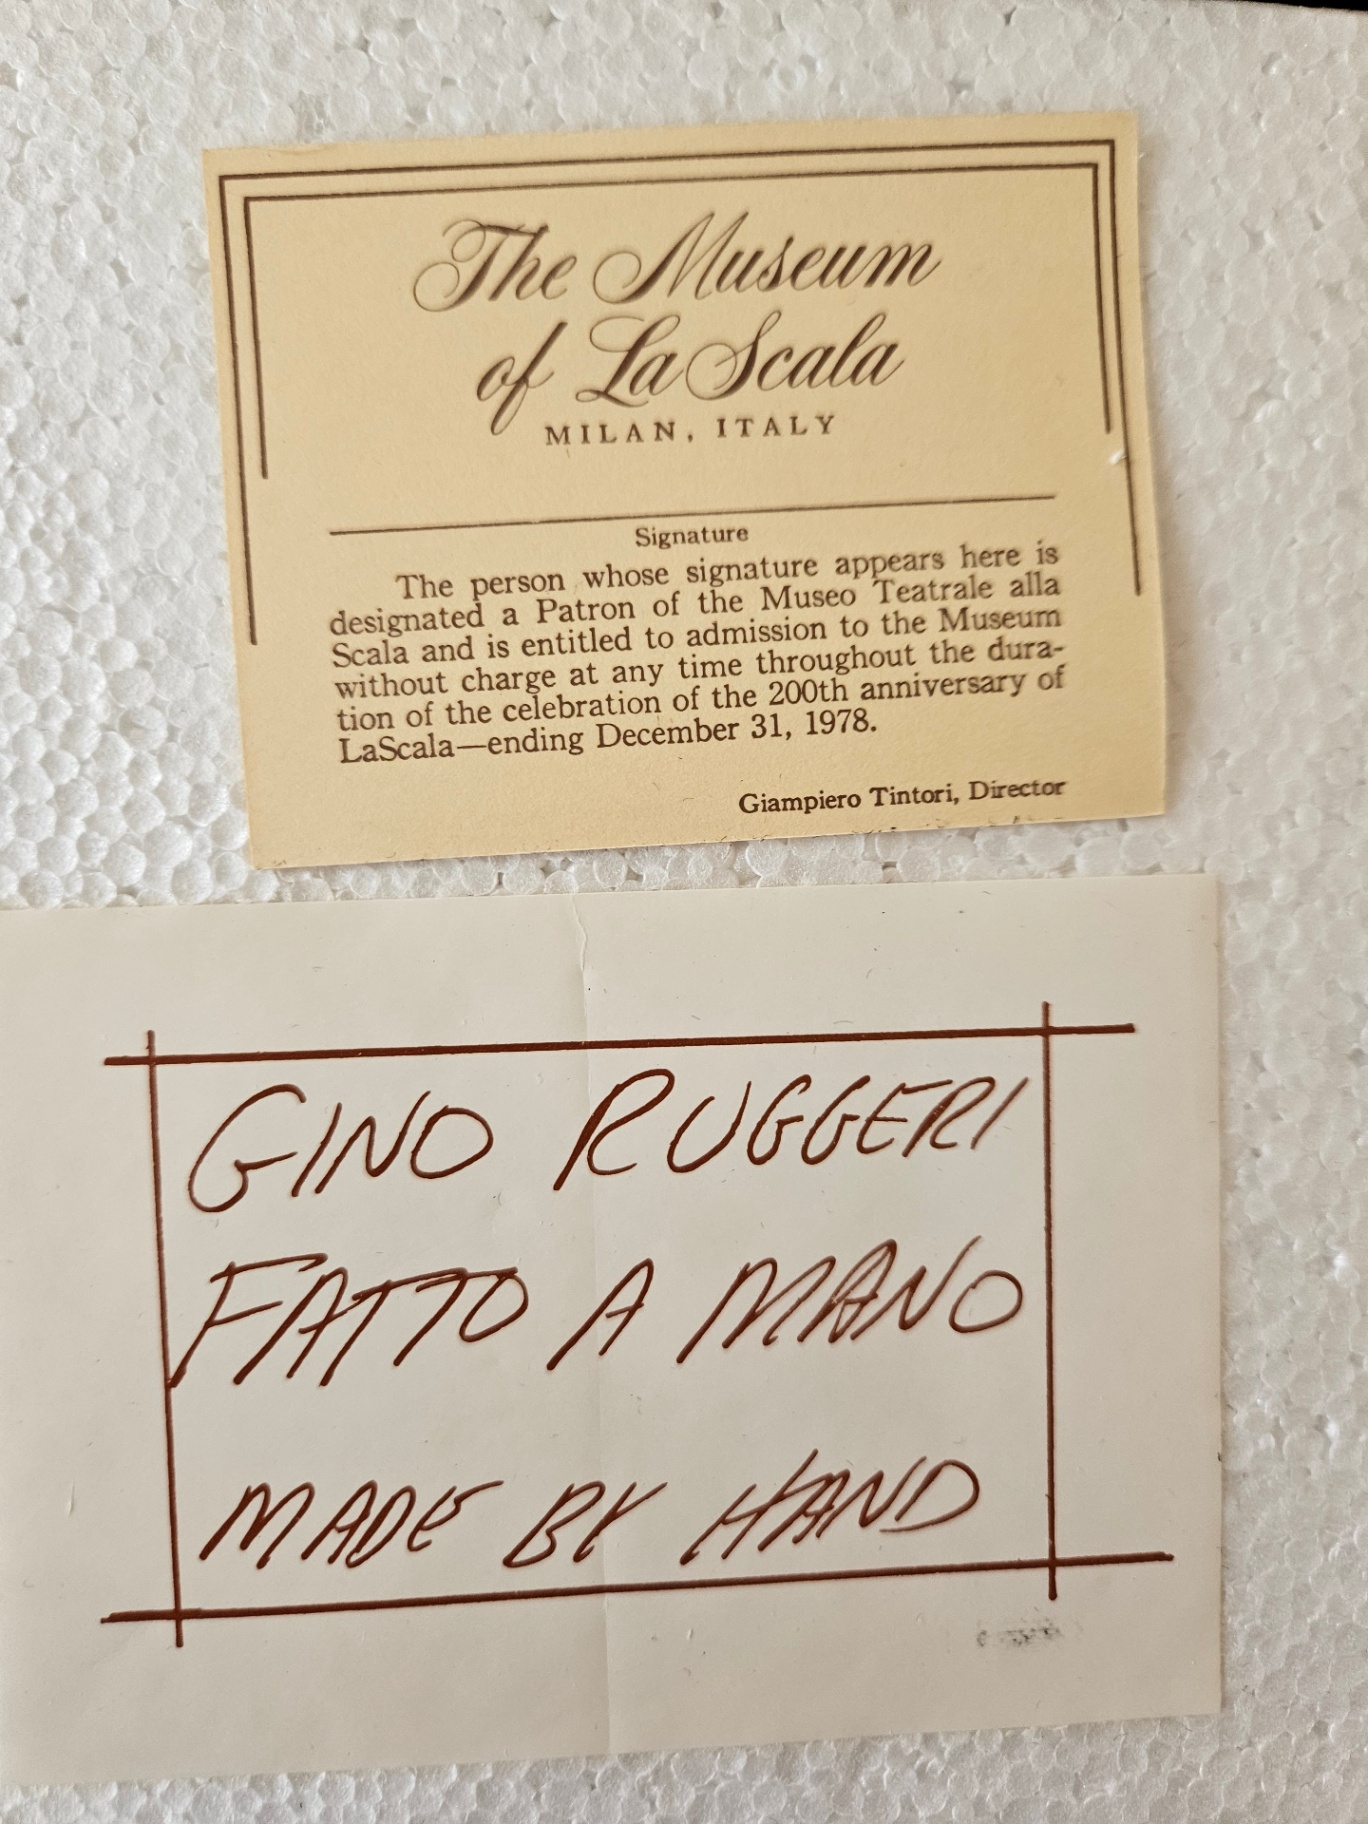 The Museum
of La Scala
MILAN, ITALY
Signature
The person whose signature appears here is
designated a Patron of the Museo Teatrale alla
Scala and is entitled to admission to the Museum
without charge at any time throughout the dura-
tion of the celebration of the 200th anniversary of
LaScala—ending December 31, 1978.
Giampiero Tintori, Director
GINO RUGGERI
FATTO A MANO
MADE BY HAND